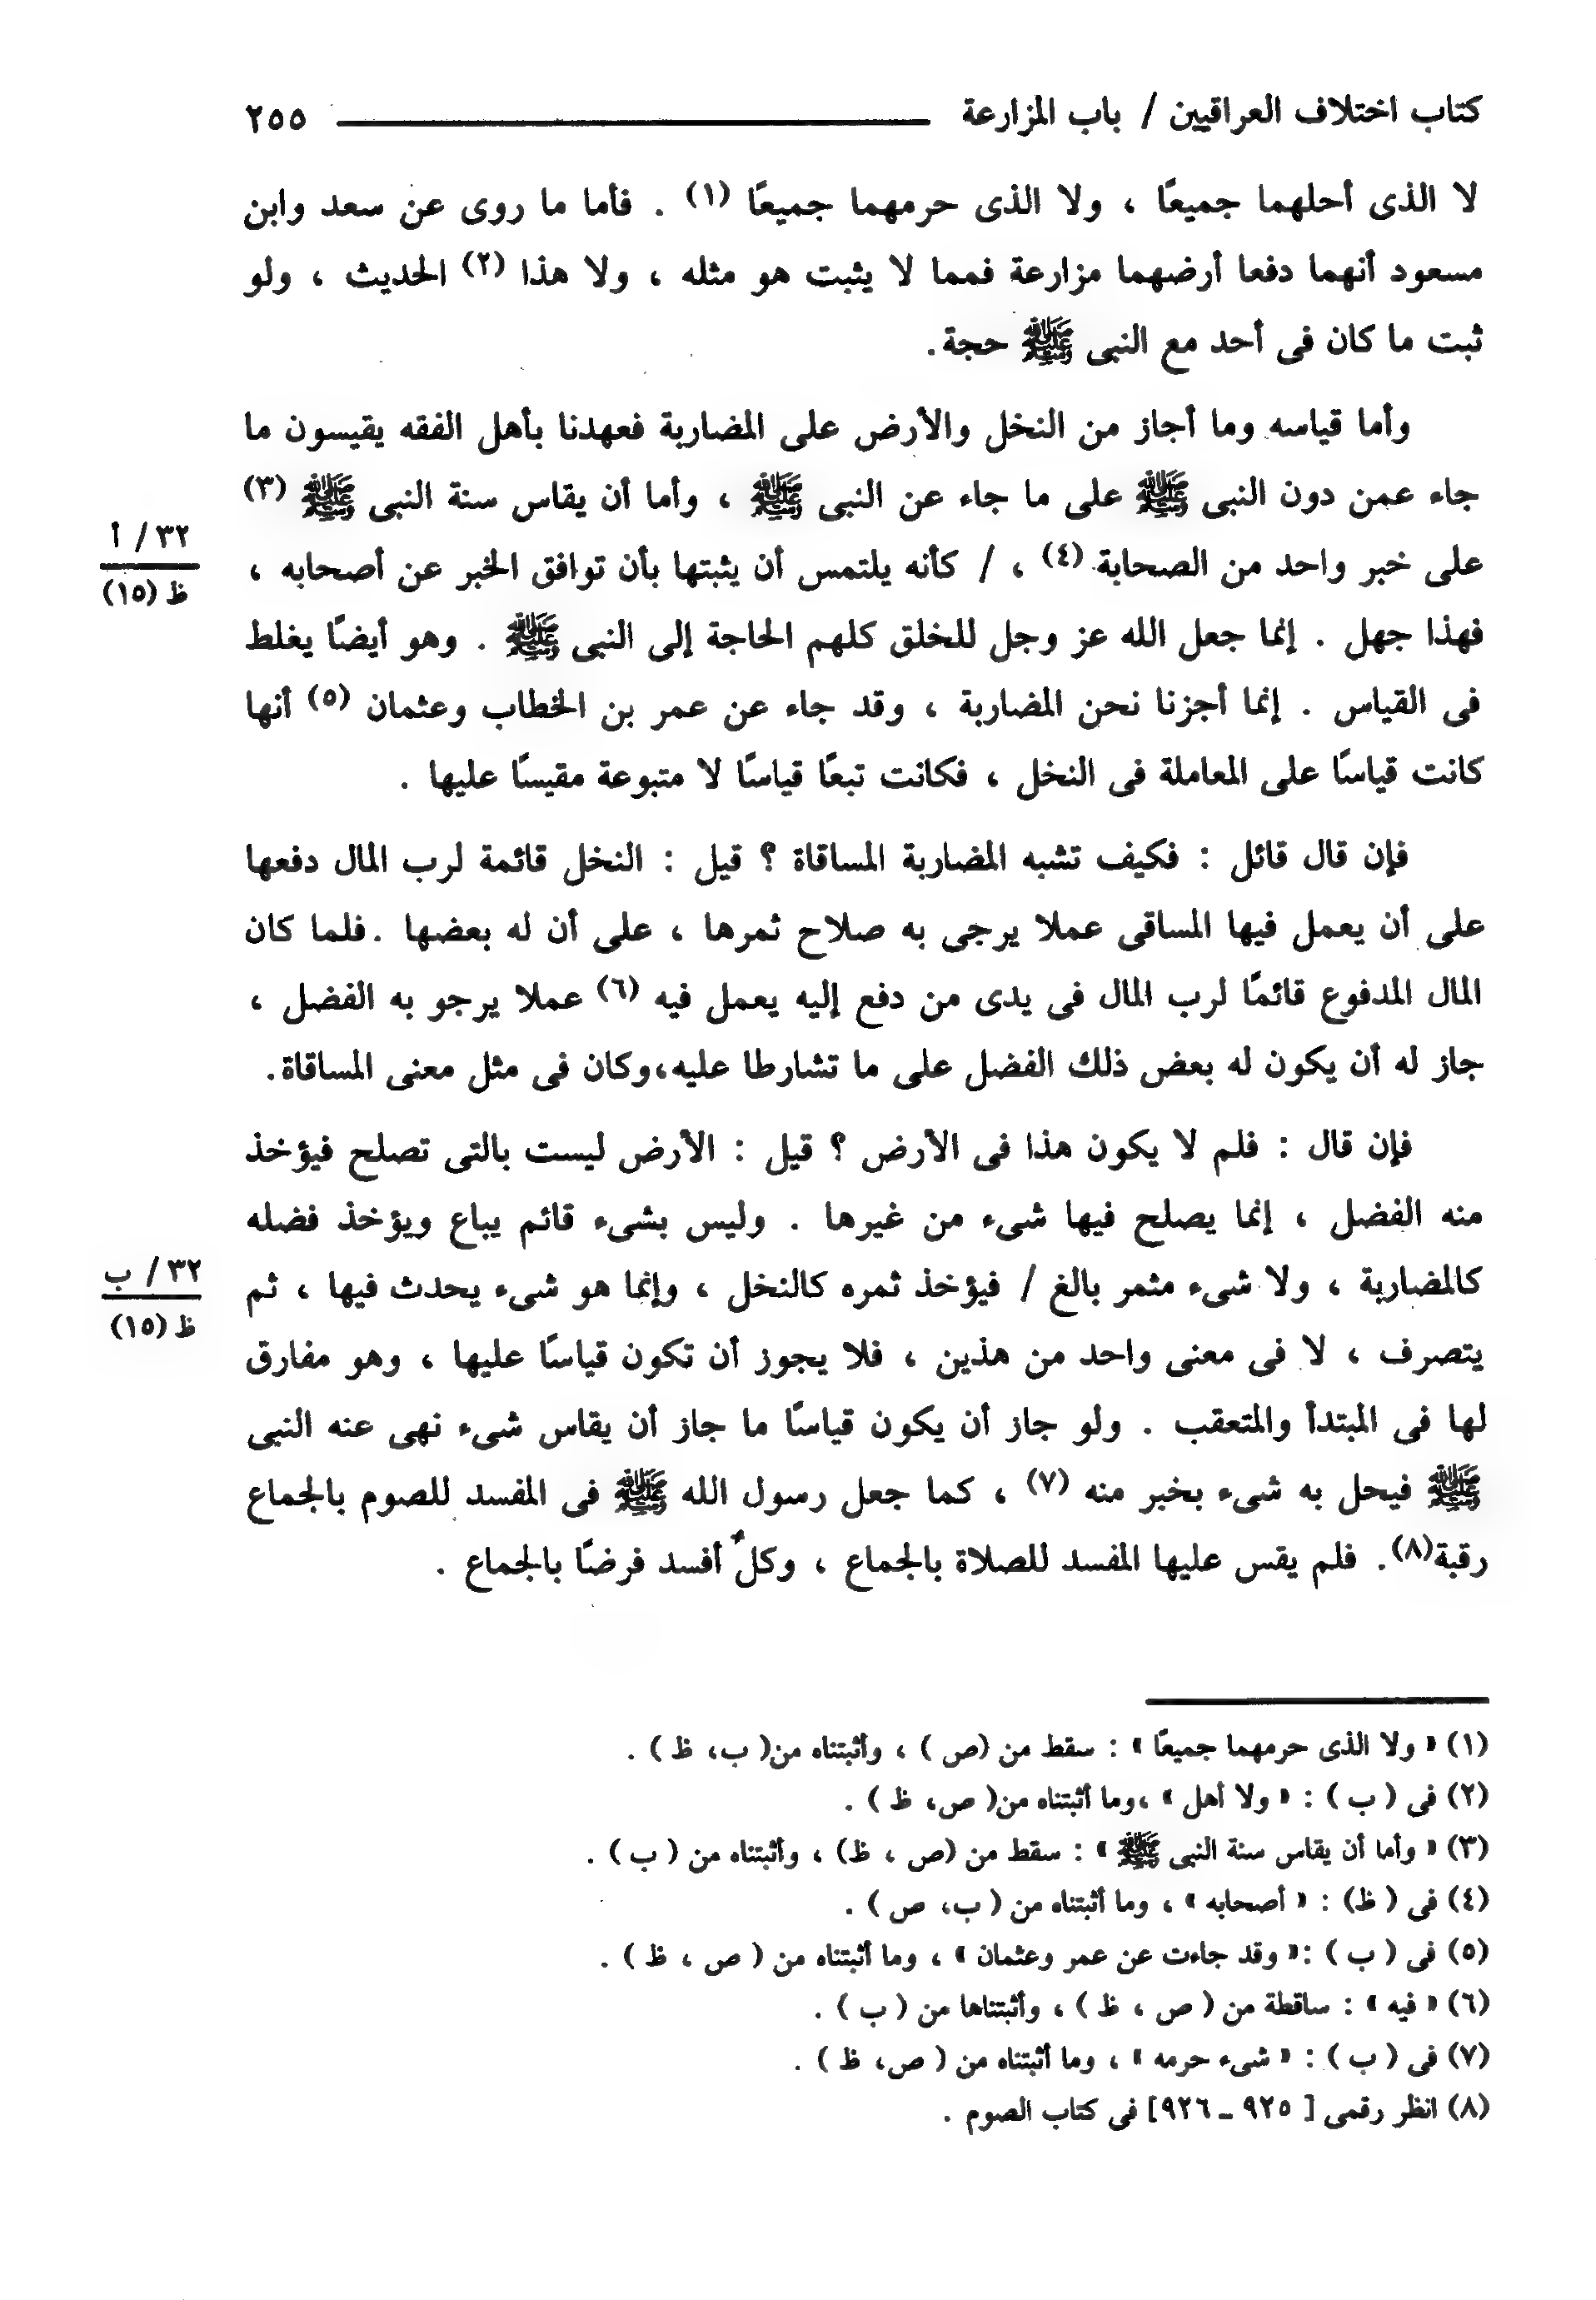 كتاب اختلاف العراقيين / باب المزارعة ٢٥٥
لا الذى أحلهما جميعًا ، ولا الذى حرمهما جميعًا (١) . فأما ما روى عن سعد وابن
مسعود أنهما دفعا أرضهما مزارعة فمما لا يثبت هو مثله ، ولا هذا (٢) الحديث ، ولو
ثبت ما كان فى أحد مع النبى ﷺ حجة.
وأما قياسه وما أجاز من النخل والأرض على المضاربة فعهدنا بأهل الفقه يقيسون ما
جاء عمن دون النبى ﷺ على ما جاء عن النبى ﷺ ، وأما أن يقاس سنة النبى ﷺ (٣)
٣٢/ أ
على خبر واحد من الصحابة (٤) ، / كأنه يلتمس أن يثبتها بأن توافق الخبر عن أصحابه ،
ظ (١٥)
فهذا جهل . إنما جعل الله عز وجل للخلق كلهم الحاجة إلى النبى ﷺ . وهو أيضًا يغلط
فى القياس . إنما أجزنا نحن المضاربة ، وقد جاء عن عمر بن الخطاب وعثمان (٥) أنها
كانت قياسًا على المعاملة فى النخل ، فكانت تبعًا قياسًا لا متبوعة مقيسًا عليها .
فإن قال قائل : فكيف تشبه المضاربة المساقاة ؟ قيل : النخل قائمة لرب المال دفعها
على أن يعمل فيها المساقى عملا يرجى به صلاح ثمرها ، على أن له بعضها .فلما كان
المال المدفوع قائمًا لرب المال فى يدى من دفع إليه يعمل فيه (٦) عملا يرجو به الفضل ،
جاز له أن يكون له بعض ذلك الفضل على ما تشارطا عليه،وكان فى مثل معنى المساقاة.
فإن قال : فلم لا يكون هذا فى الأرض ؟ قيل : الأرض ليست بالتى تصلح فيؤخذ
منه الفضل ، إنما يصلح فيها شىء من غيرها . وليس بشىء قائم يباع ويؤخذ فضله
٣٢/ ب
كالمضاربة ، ولا شىء مثمر بالغ / فيؤخذ ثمره كالنخل ، وإنما هو شىء يحدث فيها ، ثم
ظ (١٥)
يتصرف ، لا فى معنى واحد من هذين ، فلا يجوز أن تكون قياسًا عليها ، وهو مفارق
لها فى المبتدأ والمتعقب . ولو جاز أن يكون قياسًا ما جاز أن يقاس شىء نهى عنه النبى
ﷺ فيحل به شىء بخبر منه (٧) ، كما جعل رسول الله ﷺ فى المفسد للصوم بالجماع
رقبة(٨). فلم يقس عليها المفسد للصلاة بالجماع ، وكلٌ أفسد فرضًا بالجماع .
(١) « ولا الذى حرمهما جميعًا » : سقط من (ص ) ، وأثبتناه من( ب، ظ ) .
(٢) فى ( ب ) : « ولا أهل » ،وما أثبتناه من( ص، ظ ) .
(٣) « وأما أن يقاس سنة النبى ﷺ » : سقط من (ص ، ظ) ، وأثبتناه من ( ب ) .
(٤) فى ( ظ) : « أصحابه » ، وما أثبتناه من ( ب، ص ) .
(٥) فى ( ب ) :« وقد جاءت عن عمر وعثمان » ، وما أثبتناه من ( ص ، ظ ) .
(٦) « فيه » : ساقطة من ( ص ، ظ ) ، وأثبتناها من ( ب ) .
(٧) فى ( ب ) : « شىء حرمه » ، وما أثبتناه من ( ص، ظ ) .
(٨) انظر رقمى [ ٩٢٥ ـ ٩٢٦] فى كتاب الصوم .